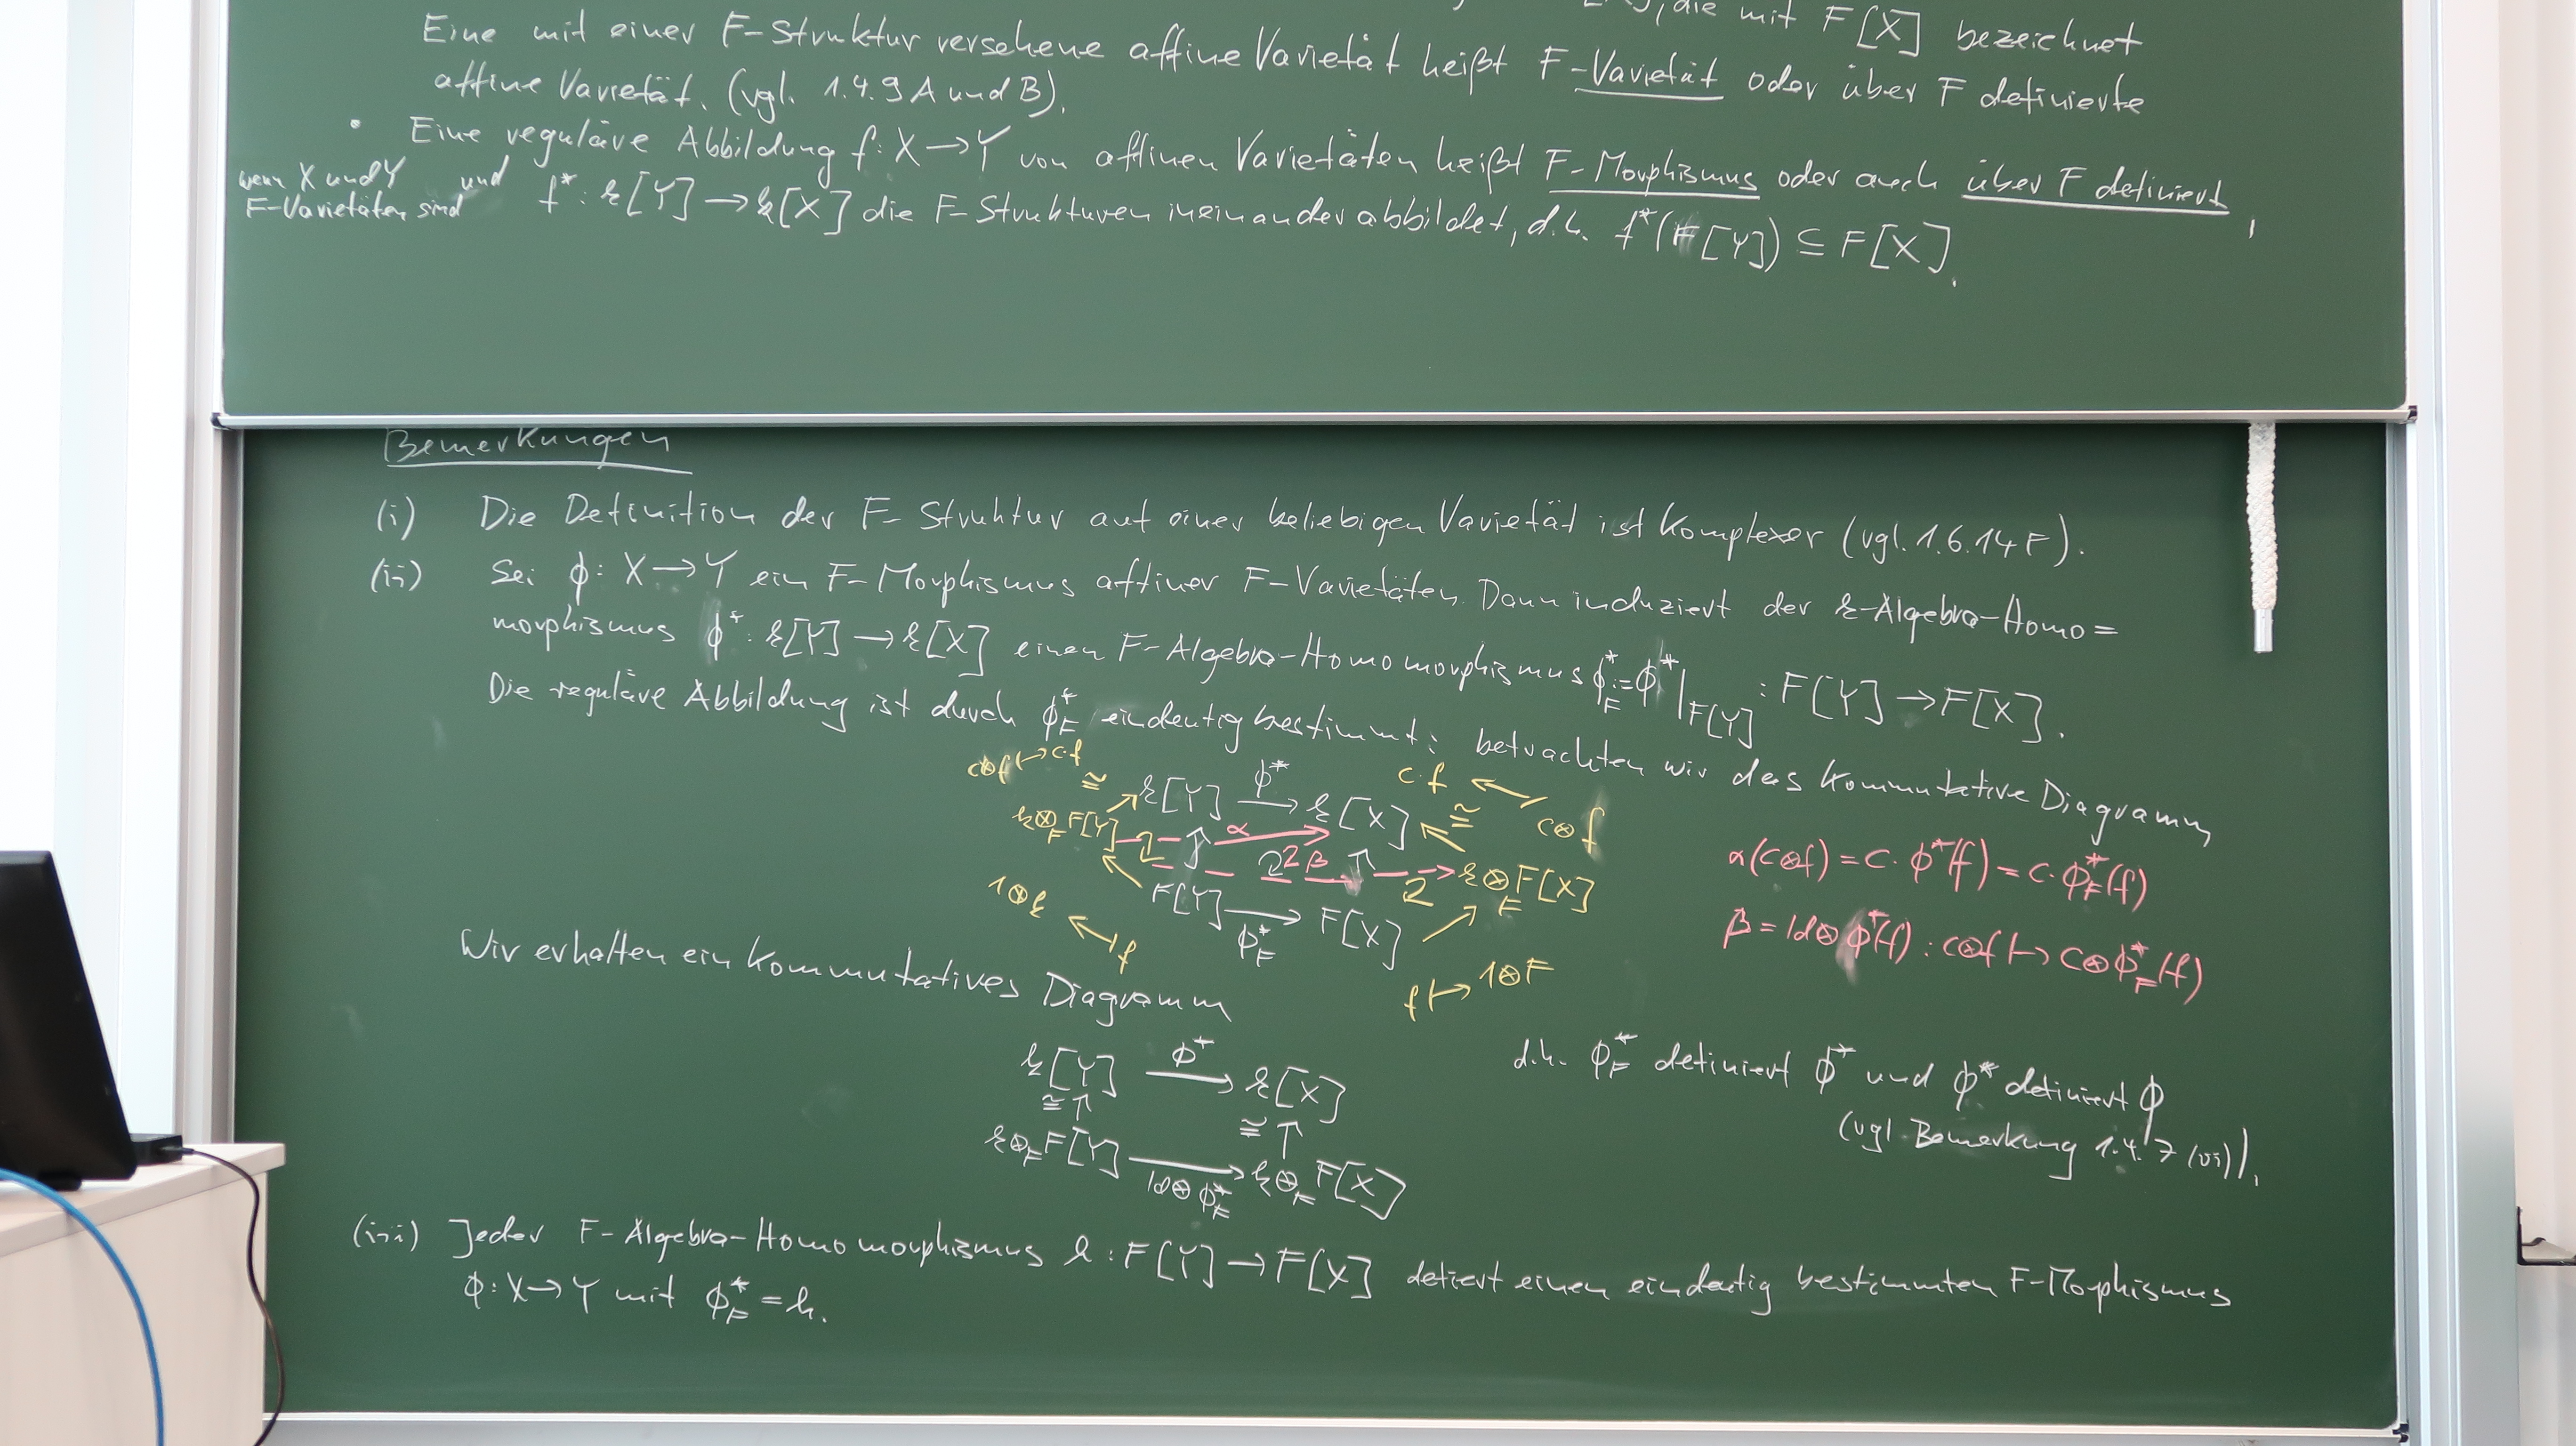 die mit F[X] bezeichnet
Eine mit einer F-Struktur versehene affine Varietät heißt F-Varietät oder über F definierte
affine Varietät. (vgl. 1.4.9 A und B).
• Eine reguläre Abbildung f: X → Y von affinen Varietäten heißt F-Morphismus oder auch über F definiert,
wenn X und Y
F-Varietäten sind
und f*: k[Y] → k[X] die F-Strukturen ineinander abbildet, d.h. f*(F[Y]) ⊆ F[X].
Bemerkungen
(i) Die Definition der F-Struktur auf einer beliebigen Varietät ist komplexer (vgl. 1.6.14 F).
(ii) Sei ϕ: X → Y ein F-Morphismus affiner F-Varietäten. Dann induziert der k-Algebra-Homo=
morphismus ϕ*: k[Y] → k[X] einen F-Algebra-Homomorphismus ϕ*_F := ϕ*|_F[Y] : F[Y] → F[X].
Die reguläre Abbildung ist durch ϕ*_F eindeutig bestimmt: betrachten wir das kommutative Diagramm
c⊗f ↦ c·f
≅ k[Y] ϕ* → k[X] c·f ← c⊗f
k⊗_F F[Y] α ≅
2 2 β 2 k⊗_F F[X]
1⊗f ↤ f
F[Y] → ϕ*_F F[X]
f ↦ 1⊗F
α(c⊗f) = c·ϕ*(f) = c·ϕ*_F(f)
β = Id⊗ϕ*(f) : c⊗f ↦ c⊗ϕ*_F(f)
Wir erhalten ein kommutatives Diagramm
k[Y] ϕ* → k[X]
≅ ↑ ≅ ↑
k⊗_F F[Y] → k⊗_F F[X]
Id⊗ϕ*_F
d.h. ϕ*_F definiert ϕ* und ϕ* definiert ϕ
(vgl. Bemerkung 1.4.7 (vi)).
(iii) Jeder F-Algebra-Homomorphismus h: F[Y] → F[X] detiert einen eindeutig bestimmten F-Morphismus
ϕ: X → Y mit ϕ*_F = h.